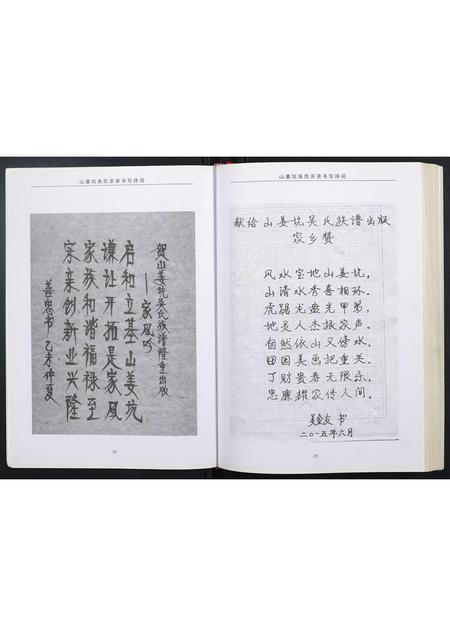 山姜坑吴氏宗亲书写诗词
贺山姜坑吴氏族谱隆重出版
——家风吟
启和立基山姜坑
谦让开拓是家风
家族和谐福禄至
宗亲创新业兴隆
善忠书 乙未仲夏
29
山姜坑吴氏宗亲书写诗词
献给山姜坑吴氏族谱出版
家乡赞
风水宝地山姜坑,
山清水秀喜相环.
虎踞龙盘光甲第,
地灵人杰振家声.
自然依山又傍水,
田园美画把重关.
丁财贵寿无限乐,
忠廉耀家传人间.
吴金友 书
二〇一五年六月
29